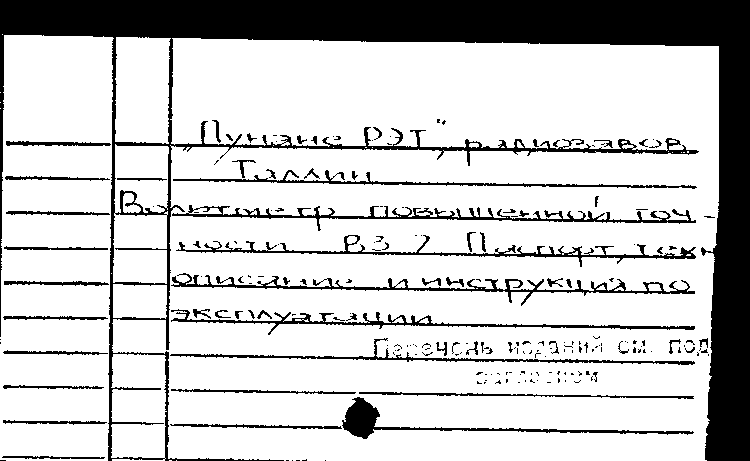 „Пунане РЭТ", радиозавод.
Таллин
Вольтметр повышенной точ-
ности В3 7 Паспорт, техн
описание и инструкция по
эксплуатации
Перечень изданий см. под
заглавием